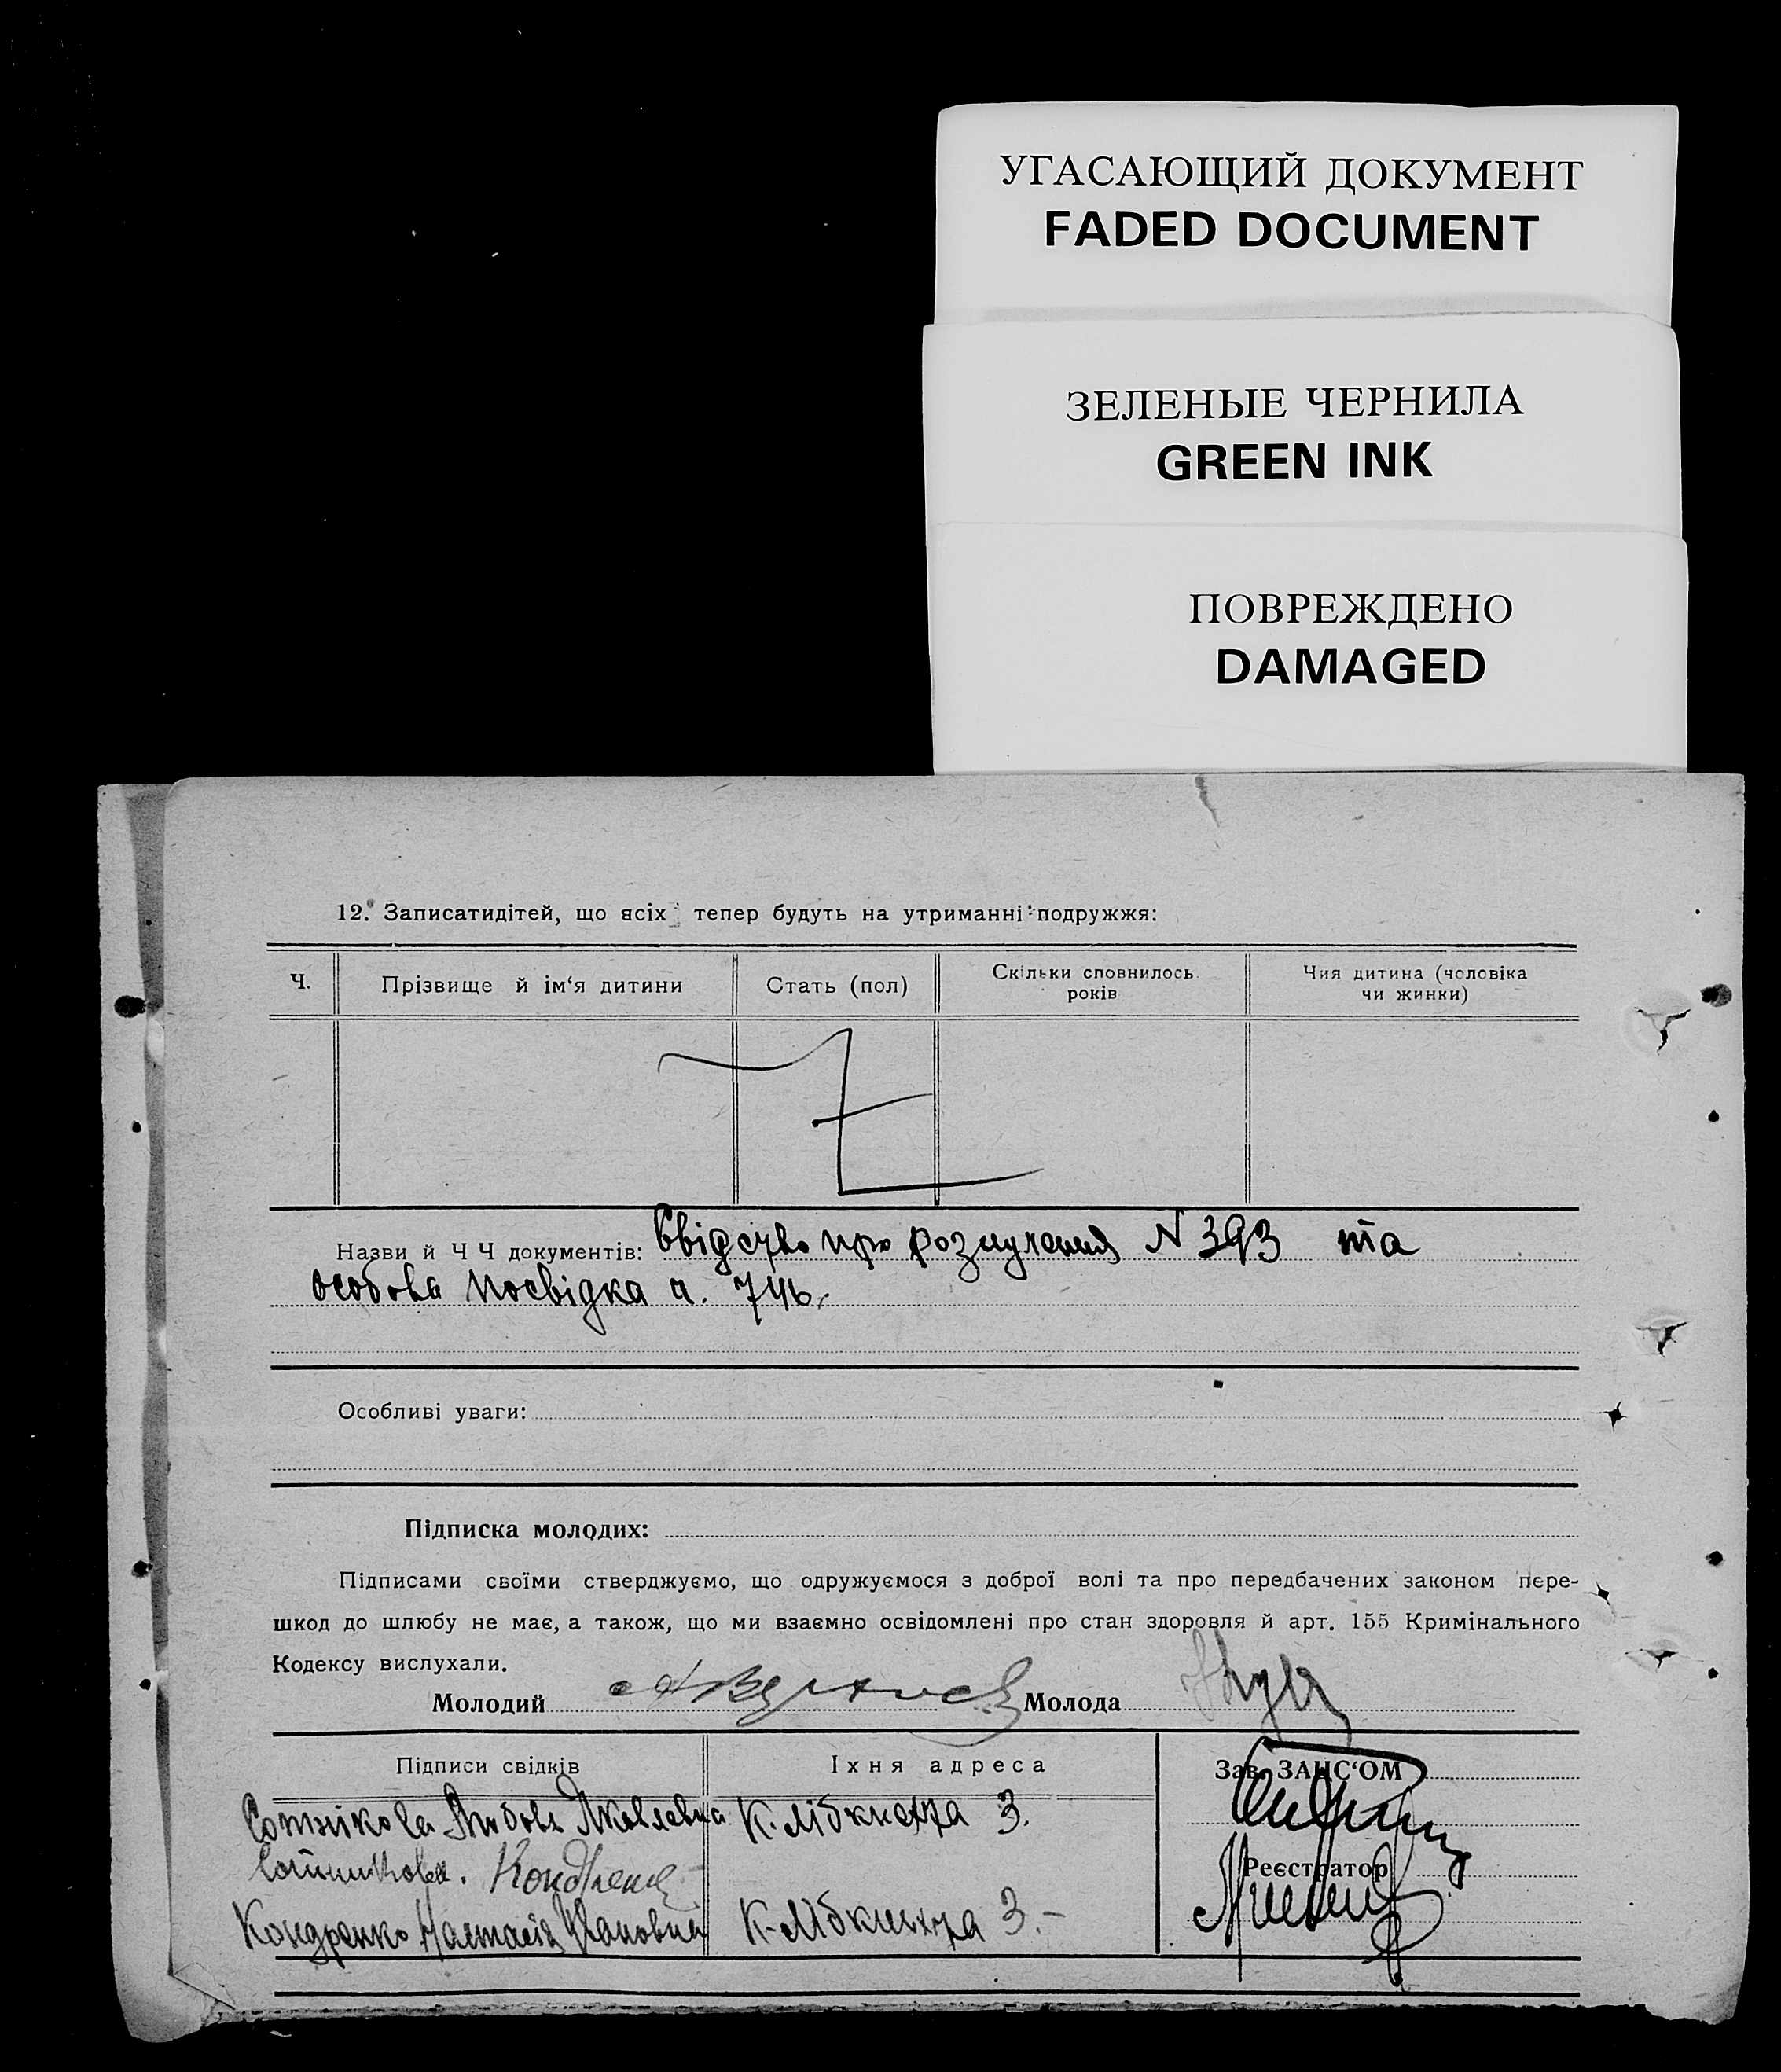 УГАСАЮЩИЙ ДОКУМЕНТ
FADED DOCUMENT
ЗЕЛЕНЫЕ ЧЕРНИЛА
GREEN INK
ПОВРЕЖДЕНО
DAMAGED
12. Записатидітей, що всіх тепер будуть на утриманні подружжя:
Ч. Прізвище й ім'я дитини Стать (пол) Скільки сповнилось років Чия дитина (чоловіка чи жинки)
Назви й Ч Ч документів: Свідство про розлучення N 393 та
особова посвідка ч.
Особливі уваги:
Підписка молодих:
Підписами своїми стверджуємо, що одружуємося з доброї волі та про передбачених законом пере-
шкод до шлюбу не має, а також, що ми взаємно освідомлені про стан здоровля й арт. 155 Кримінального
Кодексу вислухали.
Молодий Молода
Підписи свідків Їхня адреса Зав. ЗАПС'ОМ
Сотнікова Любовь Яковлевна К. Лібкнехта 3.
Сотникова. Реєстратор
Кондренко Настасія Ивановна К. Лібкнехта 3.-